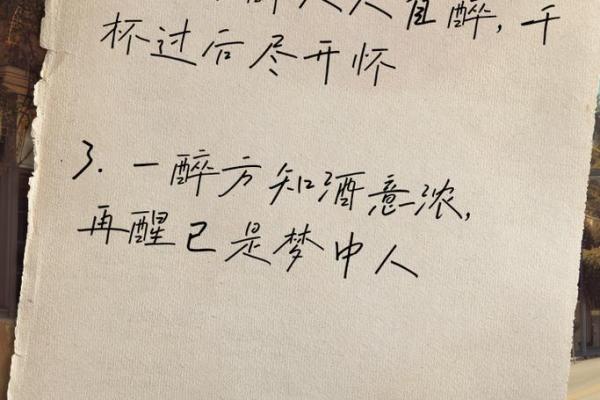 醉人人自醉,千
杯过后尽开怀
3. 一醉方知酒意浓,
再醒已是梦中人